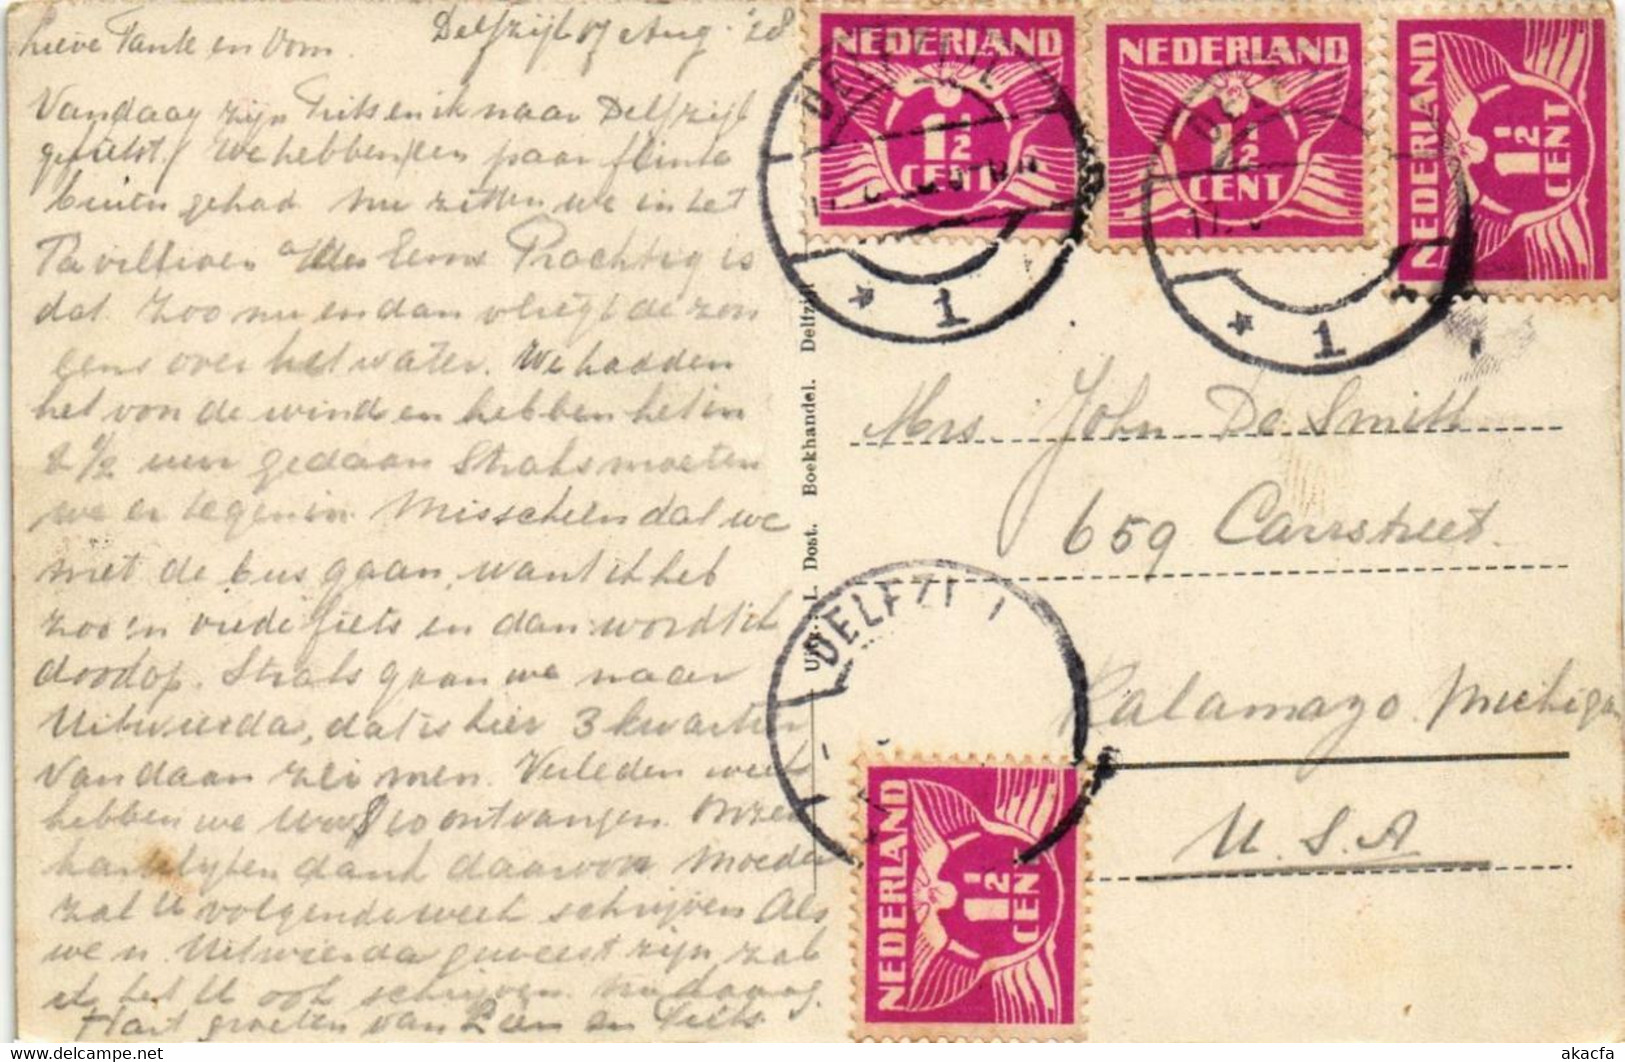 Delfzijl 17 Aug. '28
Lieve Tante en Oom.
Vandaag zijn Frits en ik naar Delfzijl
gefietst. We hebben een paar flinke
buien gehad. Nu zitten we in het
Paviljoen a/d Eems Prachtig is
dat. Zoo nu en dan vliegt de zon
eens over het water. We hadden
het van de wind en hebben het in
2 1/2 uur gedaan Straks moeten
we er tegen in. Misschien dat we
met de bus gaan, want ik heb
zoo'n fiets en dan word ik
doodop. Straks gaan we naar
Uitwierda, dat is hier 3 kwartier
vandaan zei men. Verleden week
hebben we ontvangen. Onzen
hartelijken dank daarvoor Moeder
zal U volgende week schrijven Als
we n. Uitwierda geweest zijn zal
ik het U ook schrijven.
Hart. groeten van Lien en Frits
Uitg. L. Dost. Boekhandel. Delfzijl
NEDERLAND
1½
CENT
NEDERLAND
1½
CENT
NEDERLAND
1½
CENT
DELFZIJL
1
DELFZIJL
1
Mrs John De Smith
659 Carrstreet.
Kalamazo. Michigan
U.S.A
DELFZI
NEDERLAND
1½
CENT
akpool.co.uk
akacfa